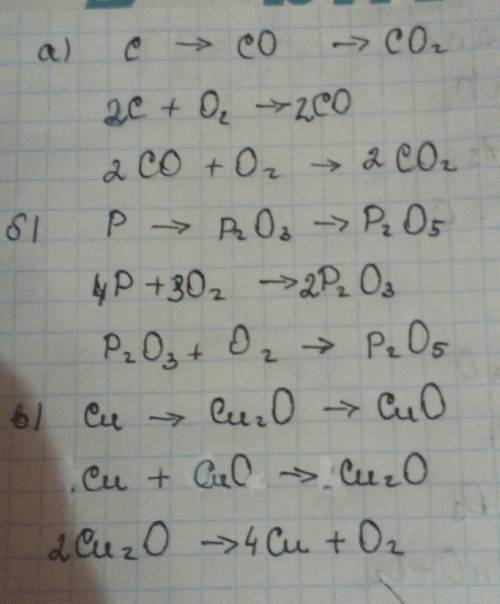 а) C → CO → CO₂
2C + O₂ → 2CO
2CO + O₂ → 2CO₂
б) P → P₂O₃ → P₂O₅
4P + 3O₂ → 2P₂O₃
P₂O₃ + O₂ → P₂O₅
в) Cu → Cu₂O → CuO
Cu + CuO → Cu₂O
2Cu₂O → 4Cu + O₂